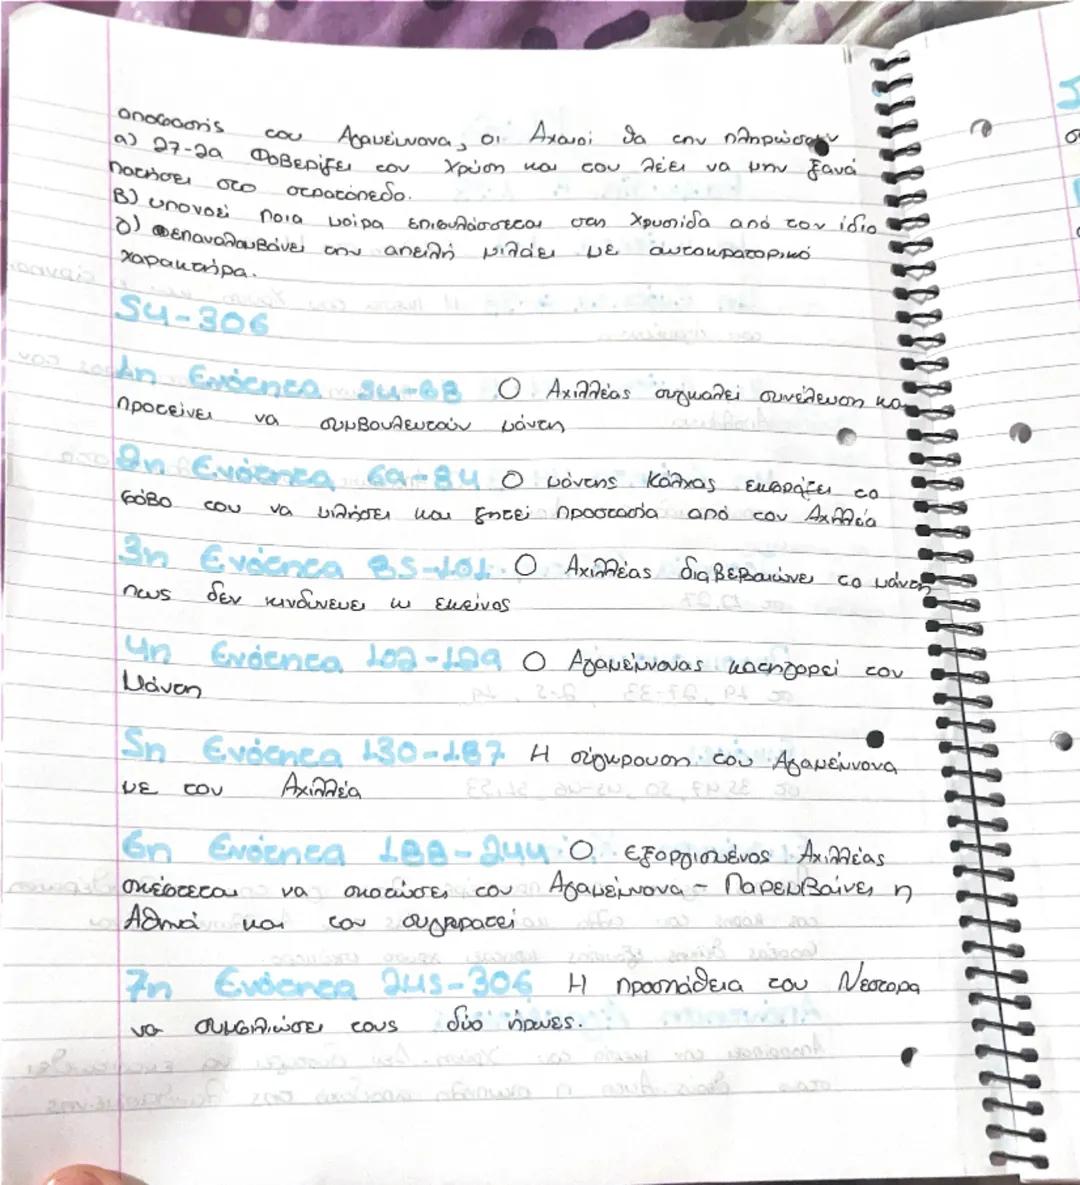 αποφασης του Αγαμέμνονα, οι Αχαιοί θα την πληρώσουν
α) 27-29 Φοβερίζει τον Χρύση και του λέει να μην ξανά
πατήσει στο στρατόπεδο.
β) υπονοεί ποια μοίρα επιφυλάσσεται στη Χρυσηίδα από τον ίδιο
δ) επαναλαμβάνει την απειλή μιλάει με αυτοκρατορικό
χαρακτήρα.
54-306
1η Ενότητα 54-68 Ο Αχιλλέας συγκαλεί συνέλευση και
προτείνει να συμβουλευτούν μάντη
2η Ενότητα 69-84 Ο μάντης Κάλχας εκφράζει το
φόβο του να μιλήσει και ζητεί προστασία από τον Αχιλλέα
3η Ενότητα 85-101. Ο Αχιλλέας διαβεβαιώνει το μάντη
πως δεν κινδυνεύει ω εκείνος
4η Ενότητα 102-129 Ο Αγαμέμνονας κατηγορεί τον
μάντη
5η Ενότητα 130-187 Η σύγκρουση του Αγαμέμνονα
με τον Αχιλλέα
6η Ενότητα 188-244 Ο εξοργισμένος Αχιλλέας
σκέφτεται να σκοτώσει τον Αγαμέμνονα - Παρεμβαίνει η
Αθηνά και τον συγκρατεί
7η Ενότητα 245-306 Η προσπάθεια του Νέστορα
να συμφιλιώσει τους δύο ήρωες.